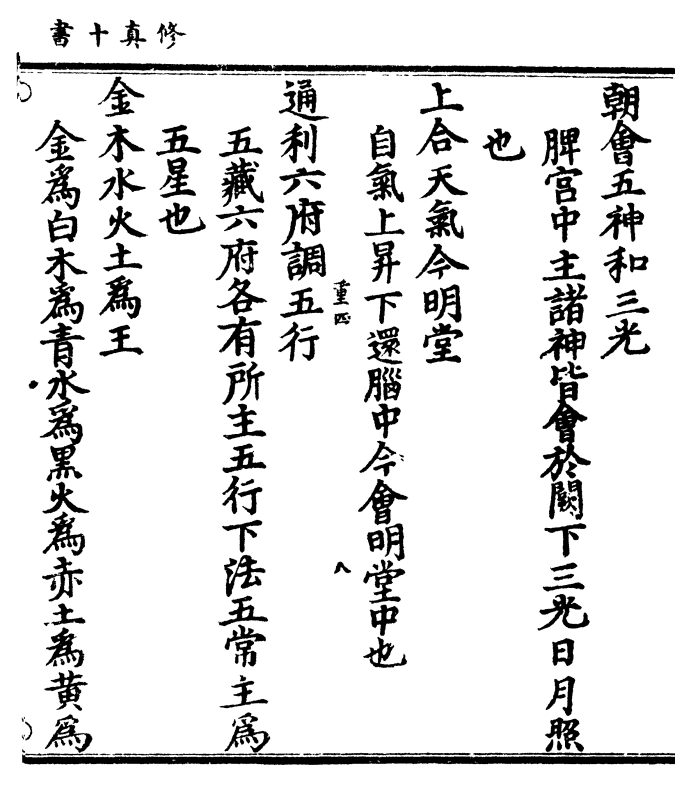 修真十書
朝會五神和三光
脾宮中主諸神皆會於闕下三光日月照
也
上合天氣今明堂
自氣上昇下還腦中今會明堂中也
重四
八
通利六府調五行
五藏六府各有所主五行下法五常主爲
五星也
金木水火土爲王
金爲白木爲青水爲黑火爲赤土爲黄爲